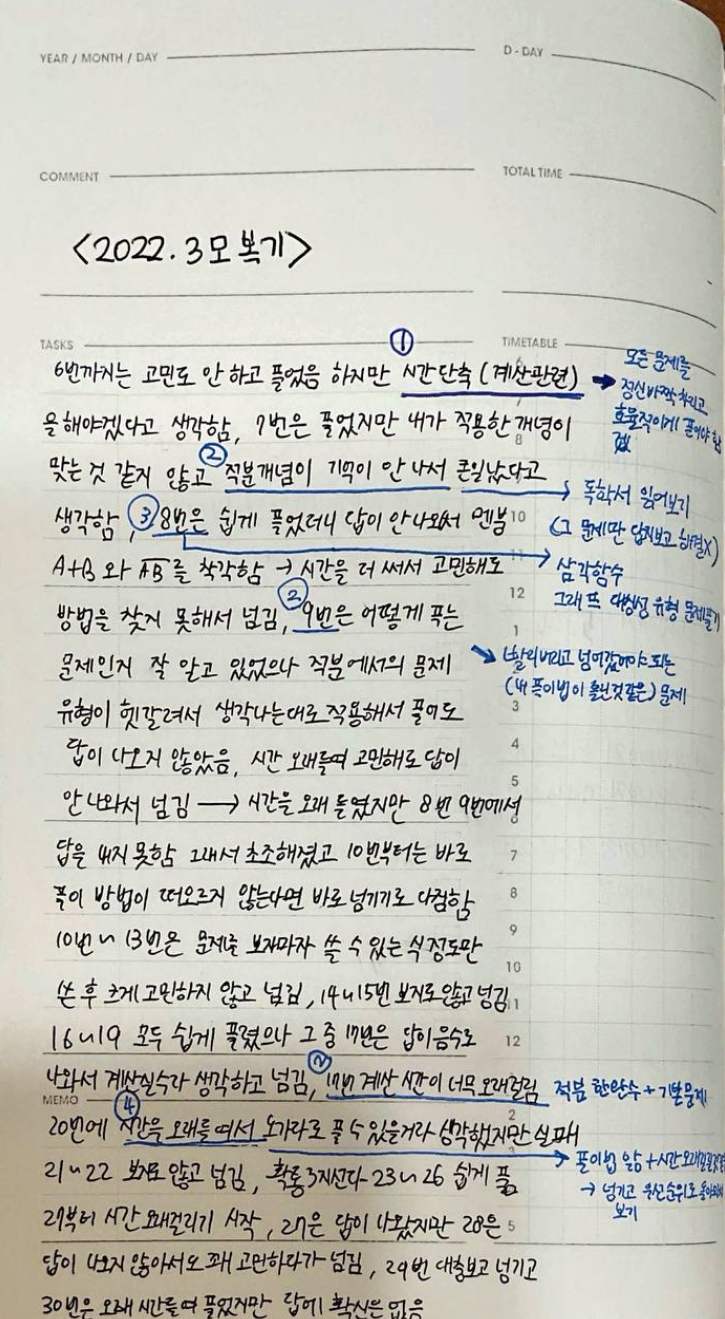 YEAR / MONTH / DAY
D-DAY
COMMENT
TOTAL TIME
<2022. 3모 복기>
TASKS
TIMETABLE
①
6번까지는 고민도 안 하고 풀었음 하지만 시간단축 (계산관련)
→ 모든 문제를
정신바짝 차리고
효율적이게 풀어야 함
을 해야겠다고 생각함, 7번은 풀었지만 내가 적용한 개념이
8
맞는 것 같지 않고 ② 적분개념이 기억이 안 나서 큰일났다고
→ 독학서 읽어보기
(그 문제만 답지보고 해결X)
생각함, ③ 8번은 쉽게 풀었더니 답이 안나와서 멘붕
10
A+B 와 AB를 착각함 → 시간을 더 써서 고민해도
11
→ 삼각함수
그래프 대칭성 유형 문제풀기
②
12
방법을 찾지 못해서 넘김, 9번은 어떻게 푸는
1
문제인지 잘 알고 있었으나 적분에서의 문제
→ 빨리버리고 넘어갔어야 되는
(내 풀이법이 틀린것같은) 문제
유형이 헷갈려서 생각나는대로 적용해서 풀어도
3
답이 나오지 않았음, 시간 오래들여 고민해도 답이
4
5
안나와서 넘김 → 시간을 오래 들였지만 8번 9번에서
답을 내지 못함 그래서 초조해졌고 10번부터는 바로
7
풀이 방법이 떠오르지 않는다면 바로 넘기기로 다짐함
8
10번~13번은 문제를 보자마자 쓸 수 있는 식 정도만
9
10
쓴 후 크게 고민하지 않고 넘김, 14~15번 보지도 않고 넘김
11
16~19 모두 쉽게 풀렸으나 그 중 17번은 답이 음수로
12
나와서 계산실수라 생각하고 넘김, ② 17번 계산 시간이 너무 오래걸림
적분 한완수 + 기탈문제
MEMO
④
20번에 시간을 오래들여서 노가다로 풀 수 있을거라 생각했지만 실패
2
→ 풀이법 앎 + 시간오래걸릴것같
→ 넘기고 우선순위로 돌아와서
보기
21~22 보지도 않고 넘김, 확통 3지선다 23~26 쉽게 풂
27부터 시간 오래걸리기 시작, 27은 답이 나왔지만 28은
5
답이 나오지 않아서 꽤 고민하다가 넘김, 29번 대충보고 넘기고
30번은 오래 시간들여 풀었지만 답에 확신은 없음